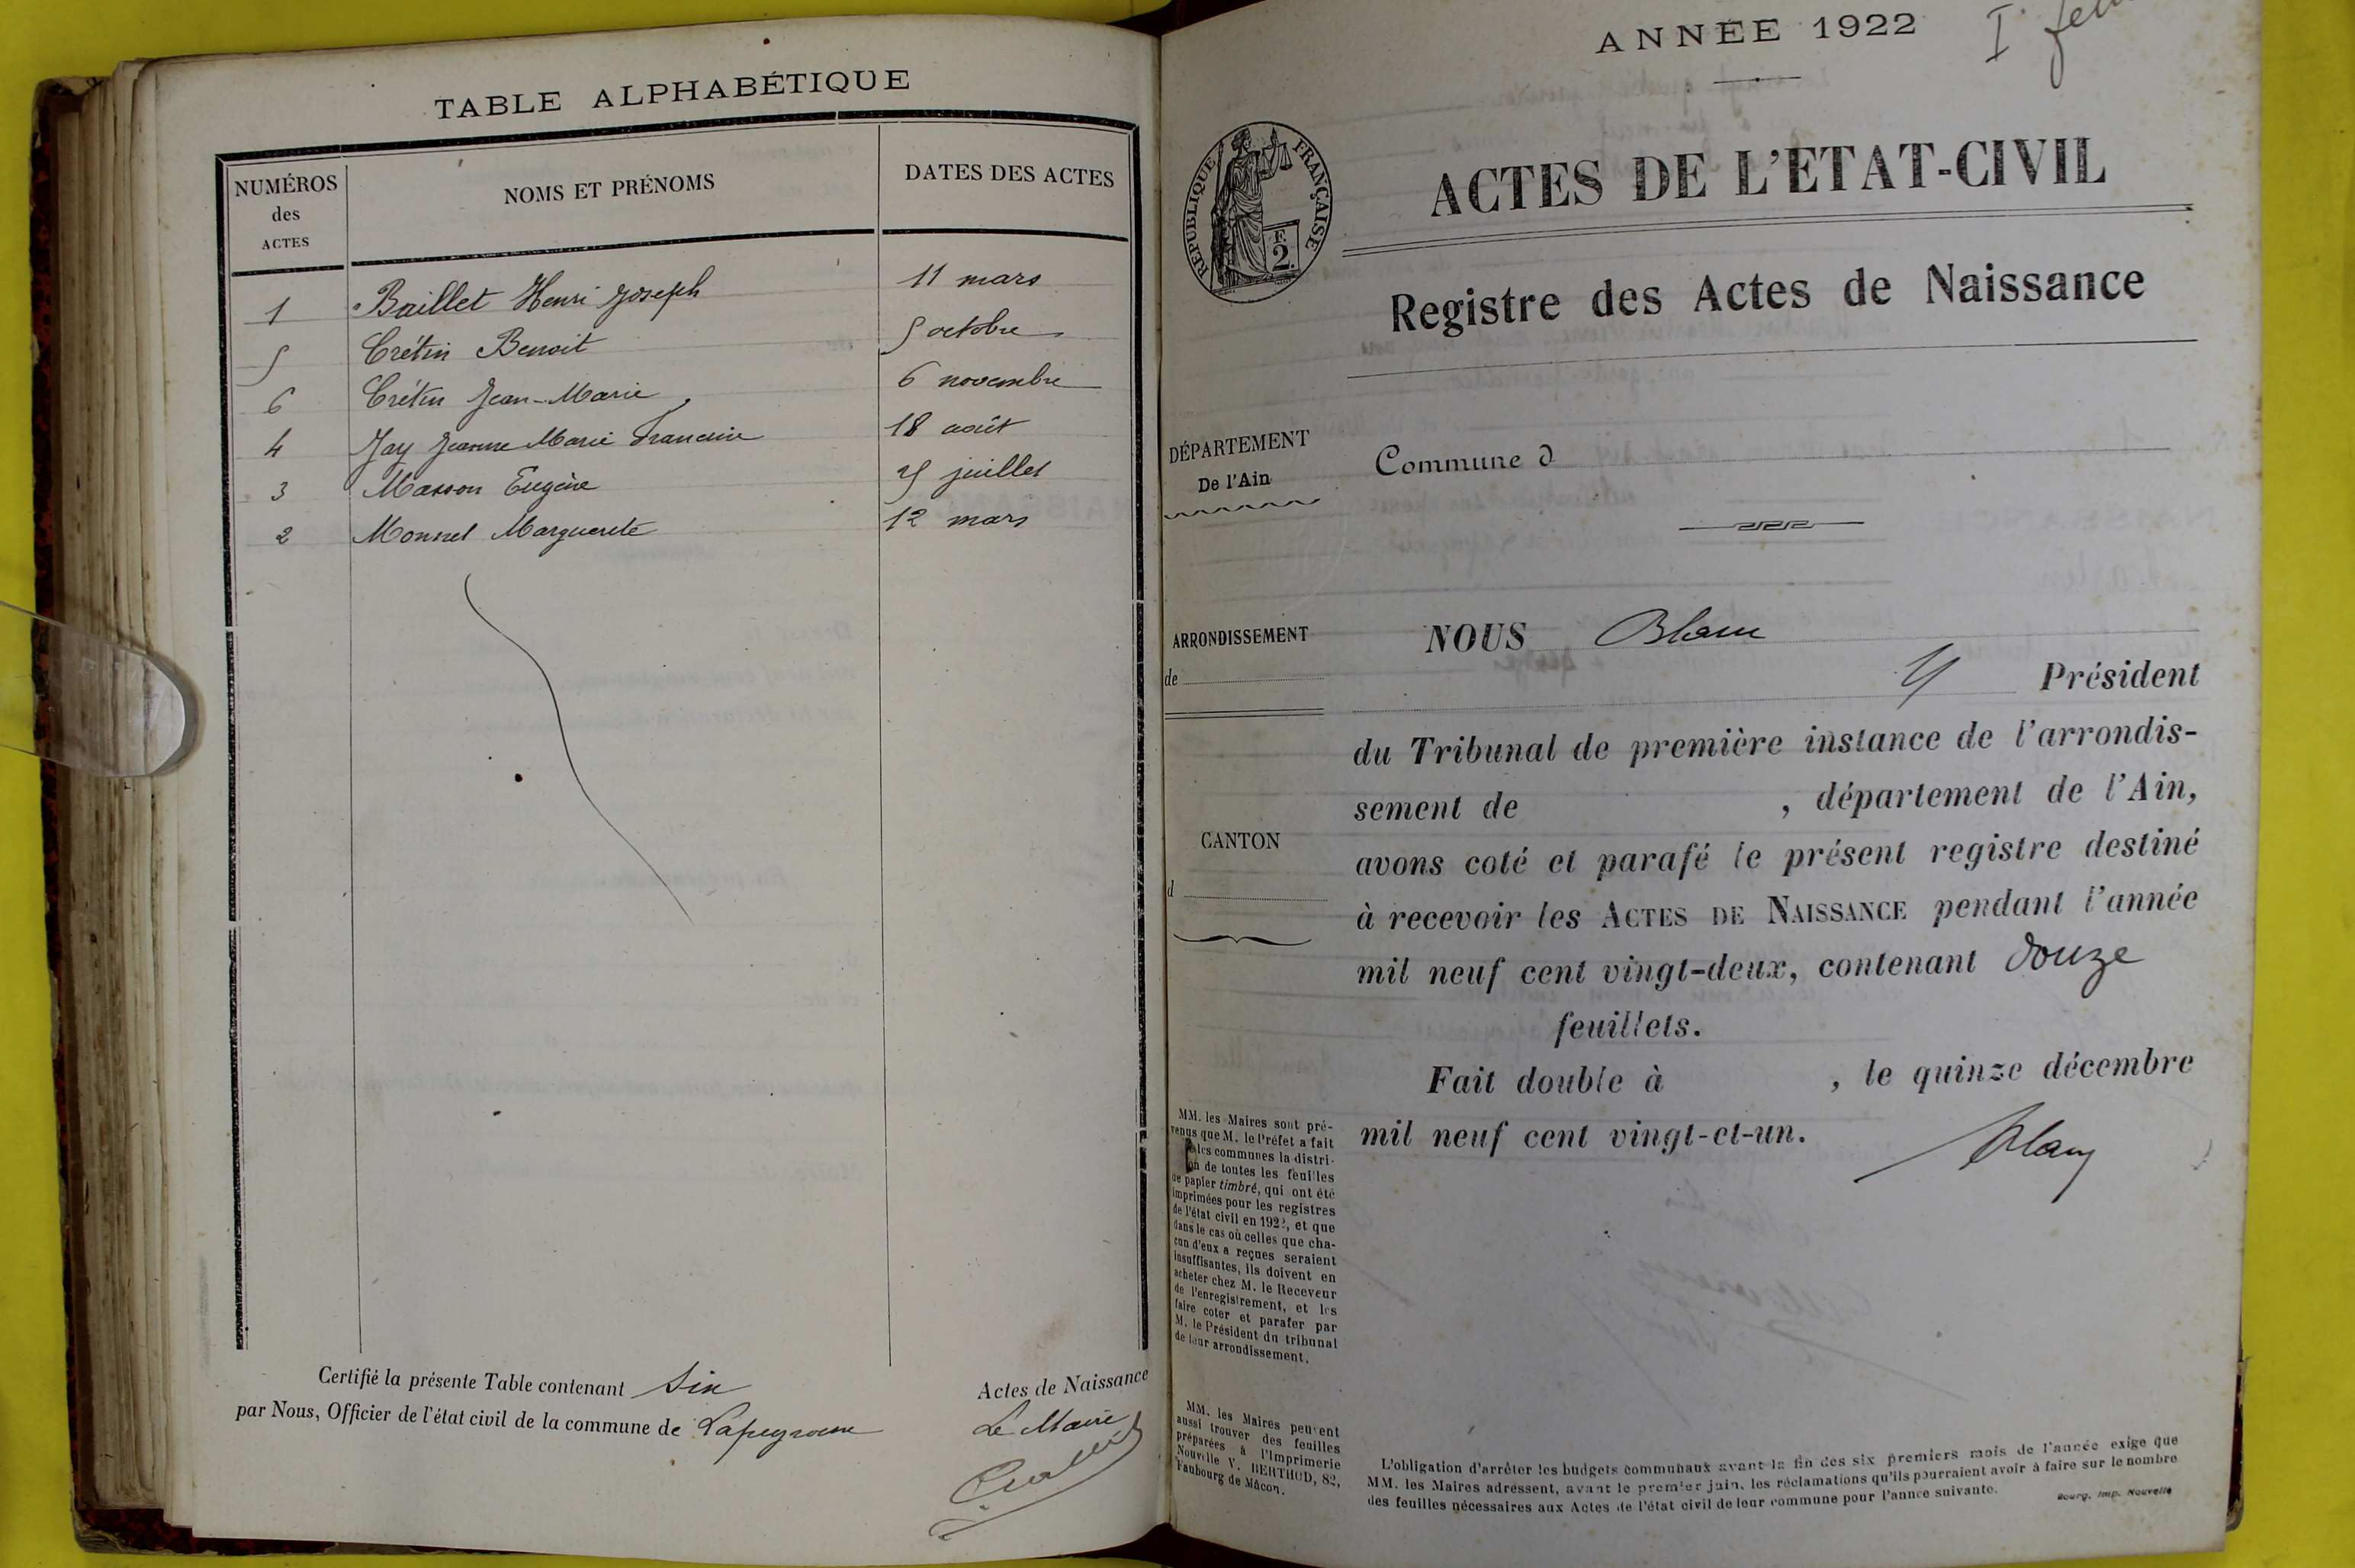 TABLE ALPHABÉTIQUE
NUMÉROS
des
ACTES
NOMS ET PRÉNOMS
DATES DES ACTES
1 Baillet Henri Joseph 11 mars
5 Crétin Benoit 5 octobre
6 Crétin Jean-Marie 6 novembre
4 Jay Jeanne Marie Francine 18 août
3 Masson Eugène juillet
2 Monnet Marguerite 12 mars
Certifié la présente Table contenant Six Actes de Naissance
par Nous, Officier de l'état civil de la commune de Lapeyrouse
Le Maire
ANNÉE 1922
I
ACTES DE L'ETAT-CIVIL
RÉPUBLIQUE FRANÇAISE
F.
2.
Registre des Actes de Naissance
DÉPARTEMENT
De l'Ain
Commune d
ARRONDISSEMENT
de
CANTON
d
NOUS Blanc
Président
du Tribunal de première instance de l'arrondis-
sement de , département de l'Ain,
avons coté et parafé le présent registre destiné
à recevoir les ACTES DE NAISSANCE pendant l'année
mil neuf cent vingt-deux, contenant douze
feuillets.
Fait double à , le quinze décembre
mil neuf cent vingt-et-un.
Blanc
MM. les Maires sont pré-
venus que M. le Préfet a fait
les communes la distri-
on de toutes les feuilles
de papier timbré, qui ont été
imprimées pour les registres
de l'état civil en 1922, et que
dans le cas où celles que cha-
cun d'eux a reçues seraient
insuffisantes, ils doivent en
acheter chez M. le Receveur
de l'enregistrement, et les
faire coter et parafer par
M. le Président du tribunal
de leur arrondissement.
MM. les Maires peuvent
aussi trouver des feuilles
préparées à l'Imprimerie
Nouvelle V. BERTHOD, 82,
Faubourg de Mâcon.
L'obligation d'arrêter les budgets communaux avant la fin des six premiers mois de l'année exige que
MM. les Maires adressent, avant le premier juin, les réclamations qu'ils pourraient avoir à faire sur le nombre
des feuilles nécessaires aux Actes de l'état civil de leur commune pour l'année suivante.
Bourg, Imp. Nouvelle